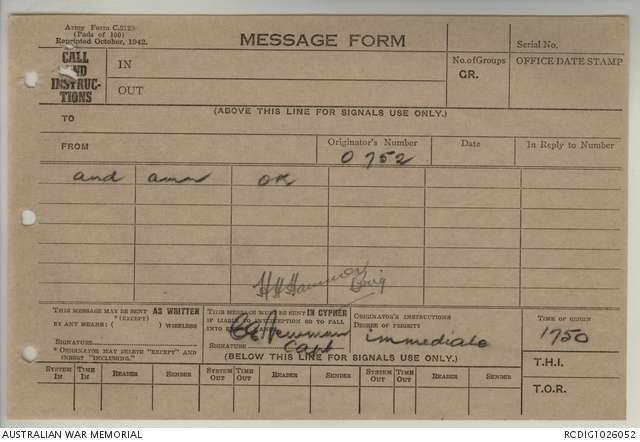 Army Form C.2128
(Pads of 100)
Reprinted October, 1942.
MESSAGE FORM
Serial No.
CALL
AND
INSTRUC-
TIONS
IN
OUT
No. of Groups
GR.
OFFICE DATE STAMP
(ABOVE THIS LINE FOR SIGNALS USE ONLY.)
TO
FROM
Originator's Number
O 752
Date
In Reply to Number
and amn OK
Brig
THIS MESSAGE MAY BE SENT AS WRITTEN
(EXCEPT)
BY ANY MEANS: ( ) WIRELESS
SIGNATURE
* ORIGINATOR MAY DELETE "EXCEPT" AND
INSERT "INCLUDING."
THIS MESSAGE MUST BE SENT IN CYPHER
IF LIABLE TO INTERCEPTION OR TO FALL
Newman
Capt
SIGNATURE
ORIGINATOR'S INSTRUCTIONS
DEGREE OF PRIORITY
immediate
TIME OF ORIGIN
1750
(BELOW THIS LINE FOR SIGNALS USE ONLY.)
T.H.I.
T.O.R.
SYSTEM IN TIME IN READER SENDER SYSTEM OUT TIME OUT READER SENDER SYSTEM OUT TIME OUT READER SENDER
AUSTRALIAN WAR MEMORIAL
RCDIG1026052